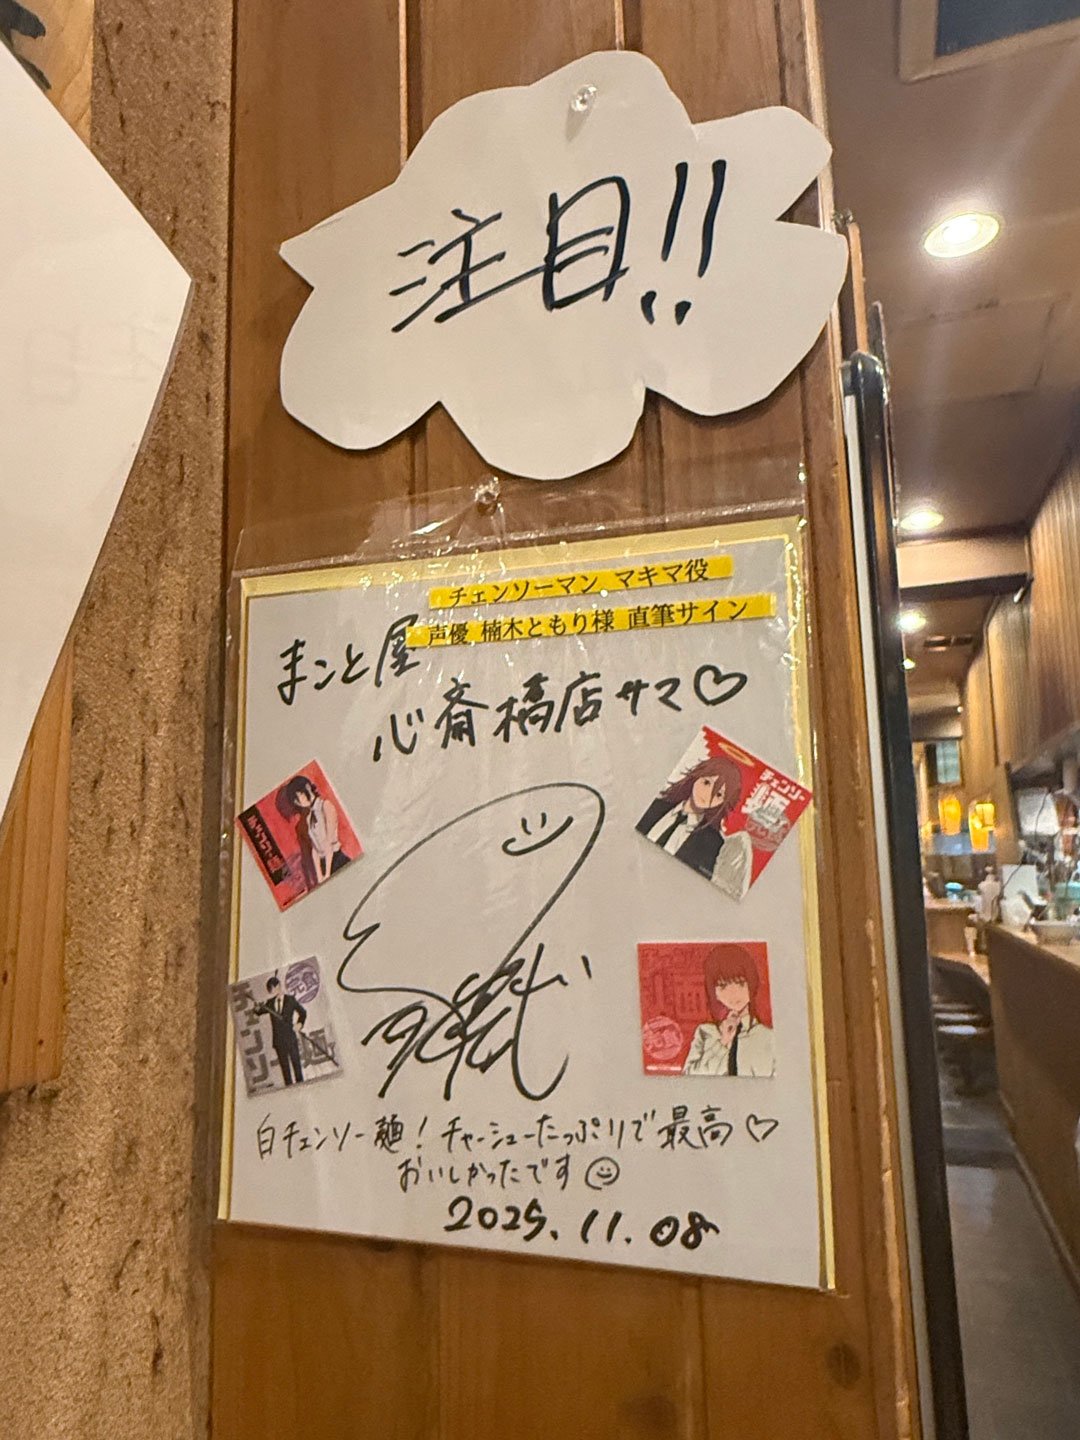 注目!!
チェンソーマン マキマ役
声優 楠木ともり様 直筆サイン
まこと屋
心斎橋店サマ♡
チェンソー
完食
チェンソー
麺
完食
白チェンソー麺！チャーシューたっぷりで最高♡
おいしかったです
2025.11.08